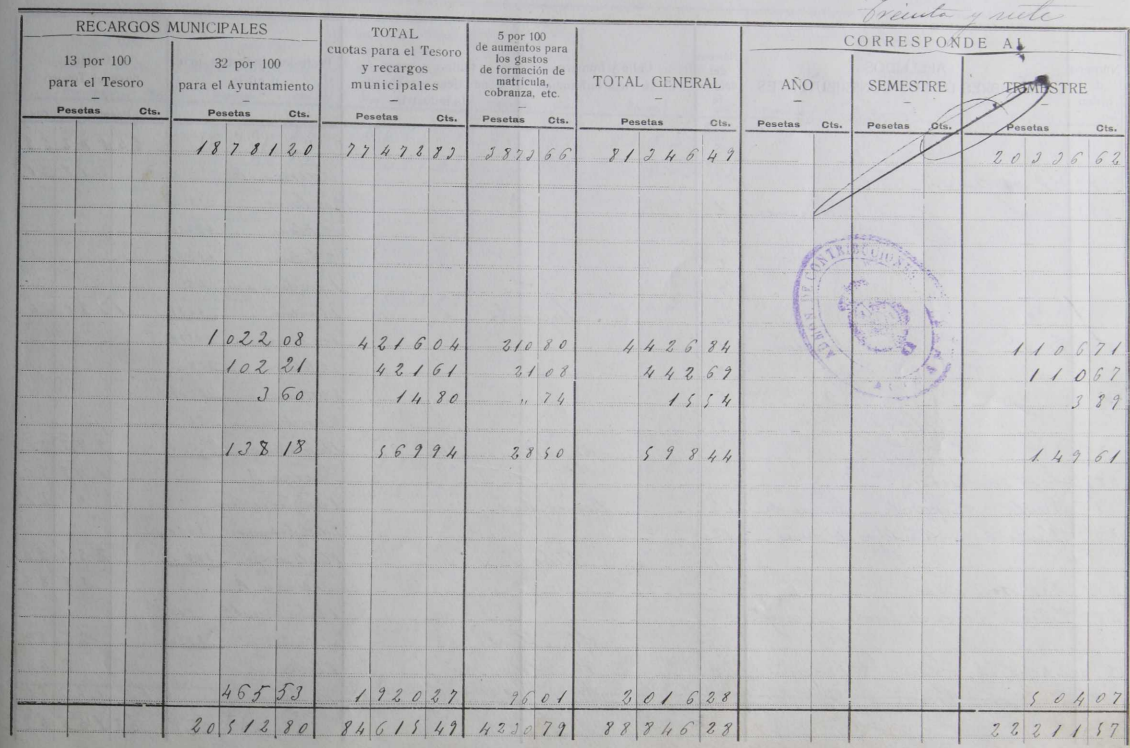 Treinta y siete
RECARGOS MUNICIPALES
13 por 100
para el Tesoro
Pesetas Cts.
32 por 100
para el Ayuntamiento
Pesetas Cts.
TOTAL
cuotas para el Tesoro
y recargos
municipales
Pesetas Cts.
5 por 100
de aumentos para
los gastos
de formación de
matrícula,
cobranza, etc.
Pesetas Cts.
TOTAL GENERAL
Pesetas Cts.
CORRESPONDE AL
AÑO
Pesetas Cts.
SEMESTRE
Pesetas Cts.
TRIMESTRE
Pesetas Cts.
18781 20 77472 83 3873 66 81346 49 20336 62
ADMON DE CONTRIBUCIONES
1022 08 4216 04 210 80 4426 84 1106 71
102 21 421 61 21 08 442 69 110 67
3 60 14 80 " 74 15 54 3 89
138 18 569 94 28 50 598 44 149 61
465 53 1920 27 96 01 2016 28 504 07
20512 80 84615 49 4230 79 88846 28 22211 57